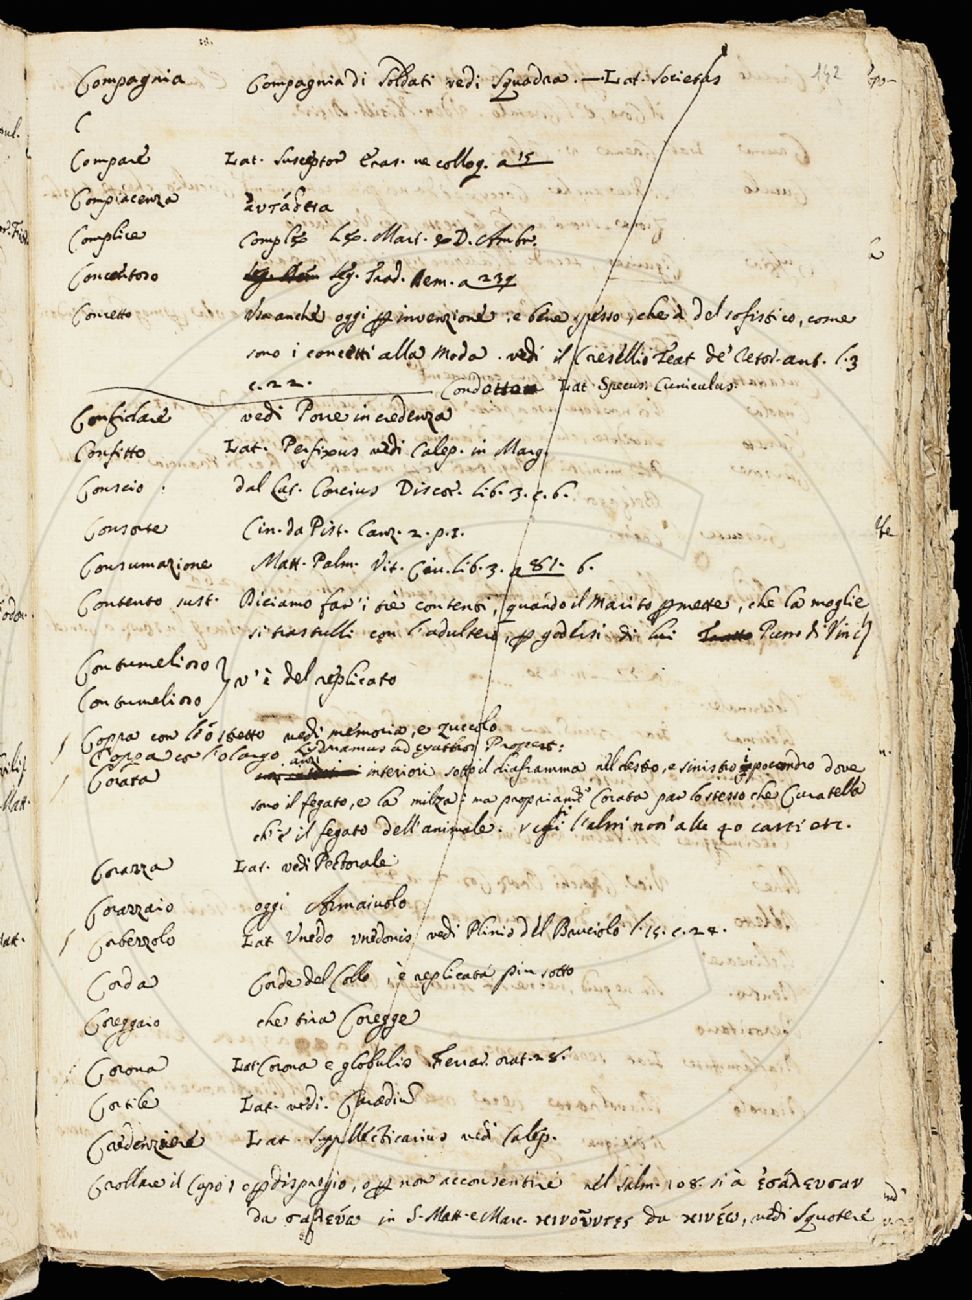 142
Compagnia Compagnia di Soldati vedi Squadra. — Lat. Societas
Compare Lat. Susceptor Eras. ne colloq. a 15
Compiacenza
Complice Complex Lex. Mart. ex D. Ambr.
Concentoro leg. Trad. Dem. a 237
Concetto Usa anche oggi per invenzione: e bene spesso, che à del sofistico, come
sono i concetti alla moda. vedi il Cresollio Teat. de' Retor. ant. l. 3
c. 22. Condotto Lat. Specus. Cuniculus.
Confidare vedi Porre in credenza
Confitto Lat. Perfixus vedi Calep. in Marg.
Conscio dal Lat. Concius Discor. Lib. 3. c. 6.
Consorte Cin. da Pist. Canz. 2. p. 1.
Consumazione Matt. Palm. Vit. Civ. Lib. 3. a 81. 6.
Contento sust. Diciamo far' i tre contenti, quando il Marito permette, che la moglie
si trastulli con l'adultero, per godersi di lui
Contumelioso } v'è del replicato
Contumelioso }
Coppa con l'ó stretto vedi memoria, e zuccolo
Coppa co l'o largo Properz:
Corata interiori sotto il diaframma nel destro, e sinistro ipocondro dove
sono il fegato, e la milza: ma propriamte Corata par lo stesso che Curatella
ch'è il fegato dell'animale. l'altri nori alle 40 carti etc.
Corazza Lat. vedi Pettorale
Corazzaio oggi Armaiuolo
Corbezzolo Lat Unedo unedonis vedi Plinio del Bauciolo l. 15. c. 24.
Corda Corde del Collo, è replicata piu sotto
Coreggaio che tira Coregge
Corona Lat Corona e globulis Ferrar. orat. 28.
Cortile Lat. vedi.
Credenziere Lat. Suppellecticarius vedi Calep.
Crollare il Capo, per dispregio, o per non acconsentire nel Salm. 108. si à ἐσάλευσαν
da σαλεύω in S. Matt. e Marc. κινοῦντες da κινέω, vedi Squotere